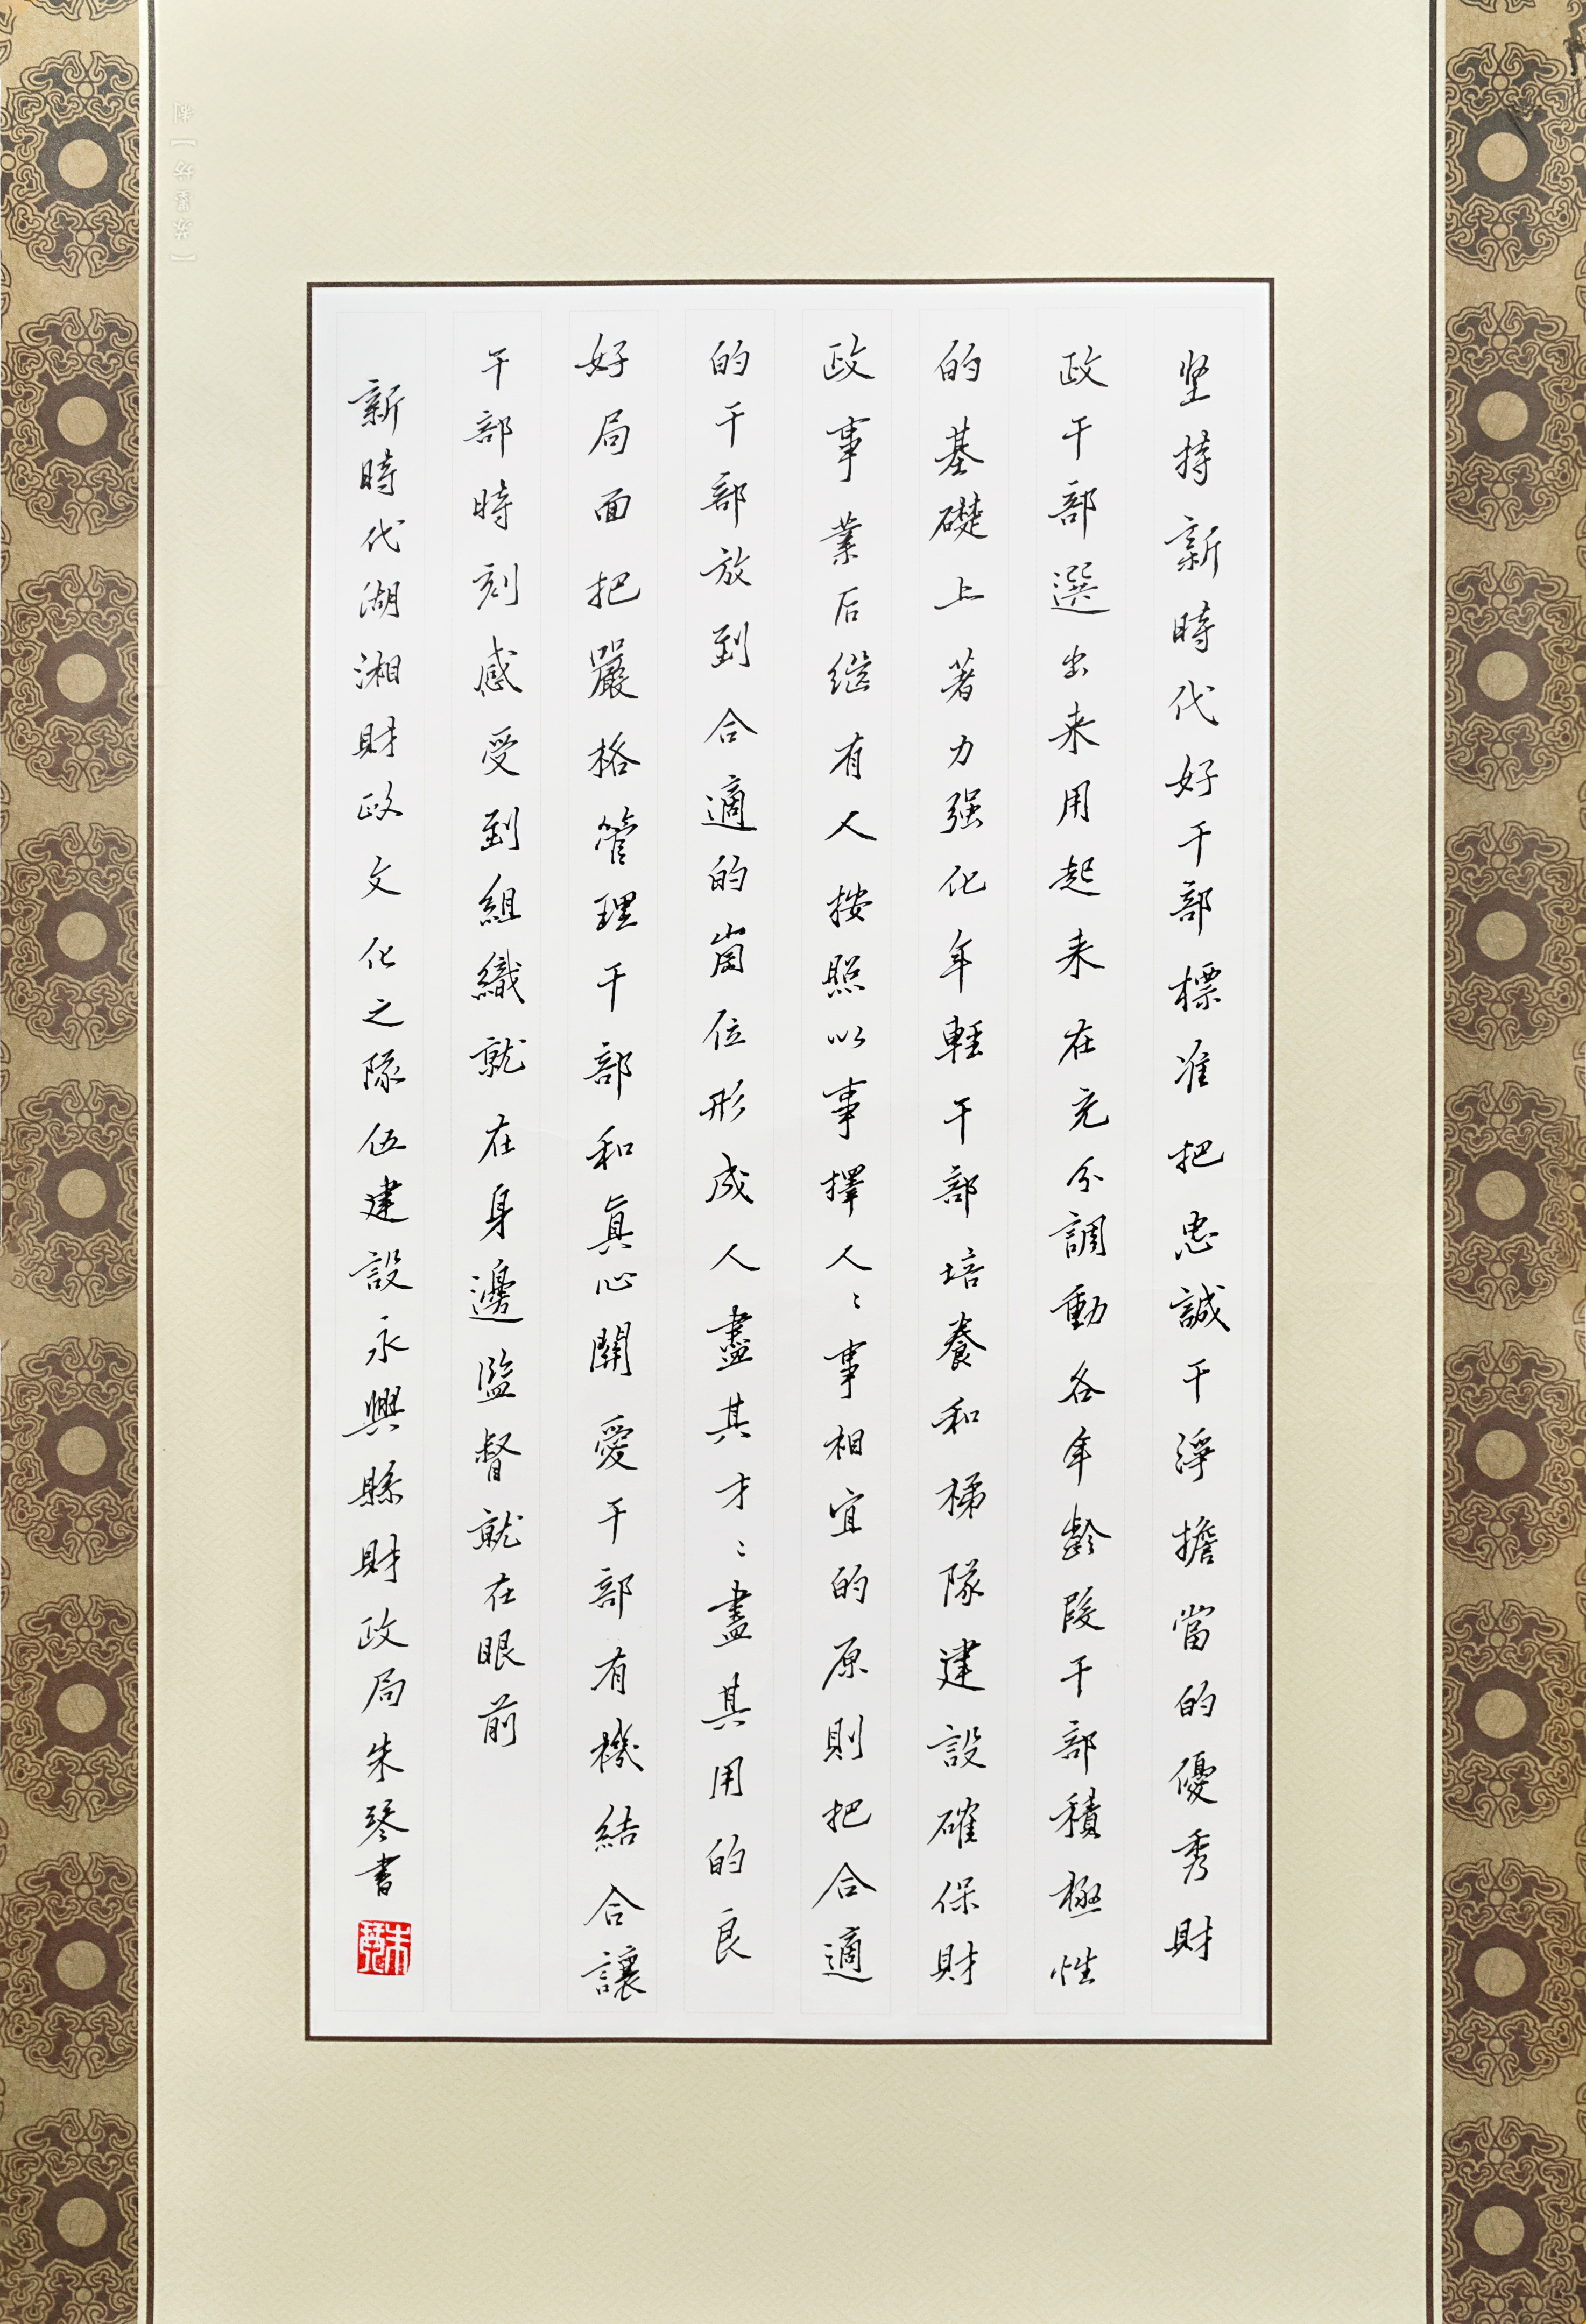 坚持新時代好干部標准把忠誠干淨擔當的優秀財
政干部選出来用起来在充分調動各年齡段干部積極性
的基礎上著力强化年輕干部培養和梯隊建設確保財
政事業后继有人按照以事擇人〻事相宜的原則把合適
的干部放到合適的崗位形成人盡其才〻盡其用的良
好局面把嚴格管理干部和真心關愛干部有機結合讓
干部時刻感受到組織就在身邊監督就在眼前
新時代湖湘財政文化之隊伍建設永興縣財政局朱琴書
朱琴